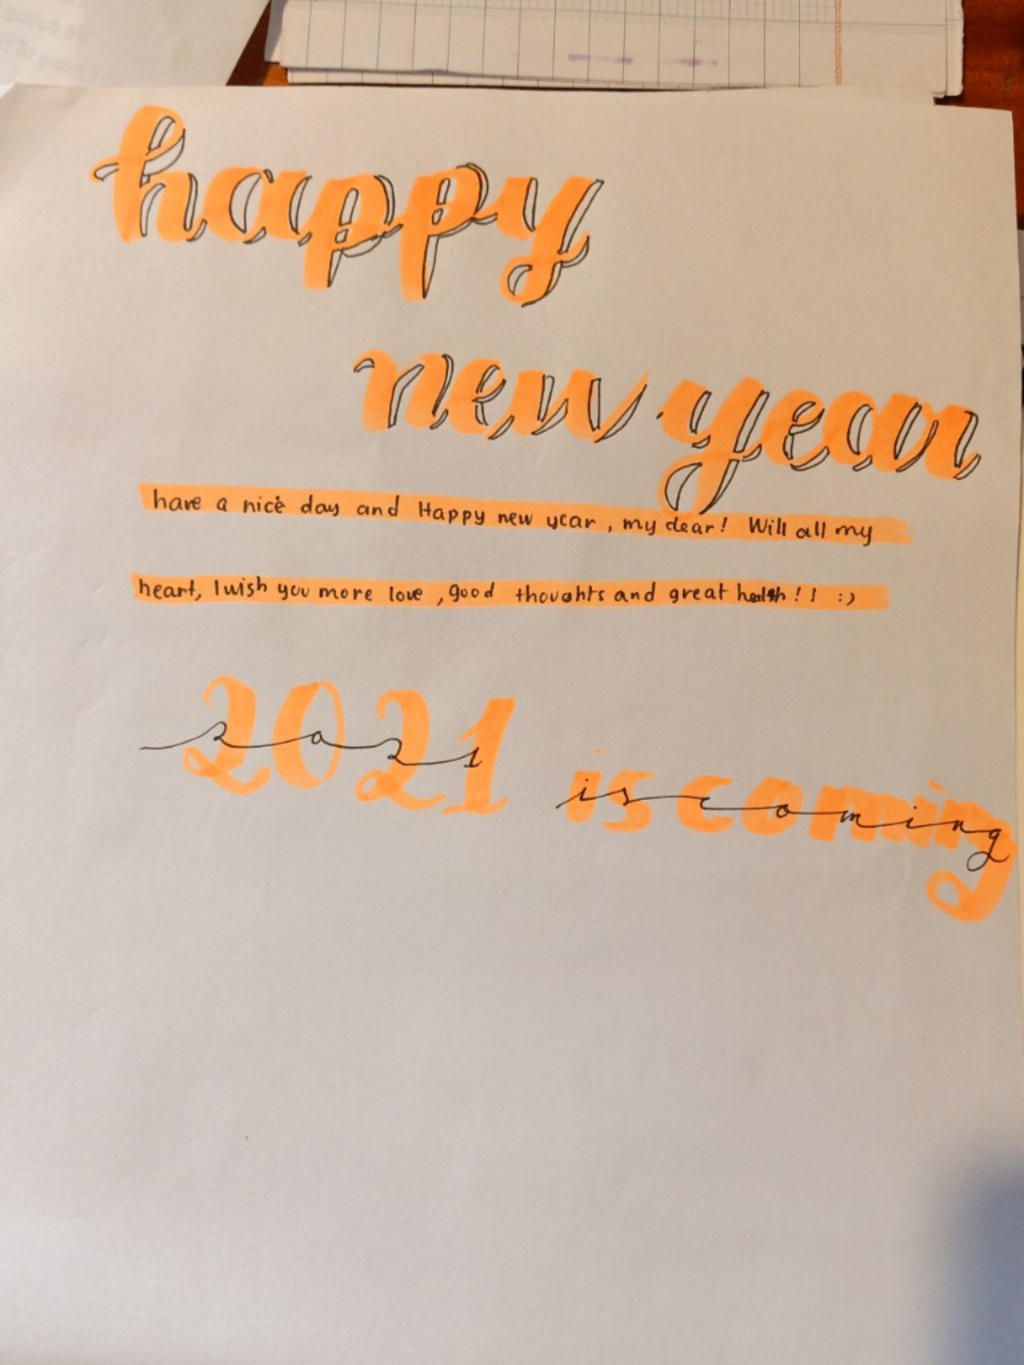 happy
new year
have a nice day and Happy new year, my dear! Will all my
heart, I wish you more love, good thoughts and great health!! :)
2021 is coming